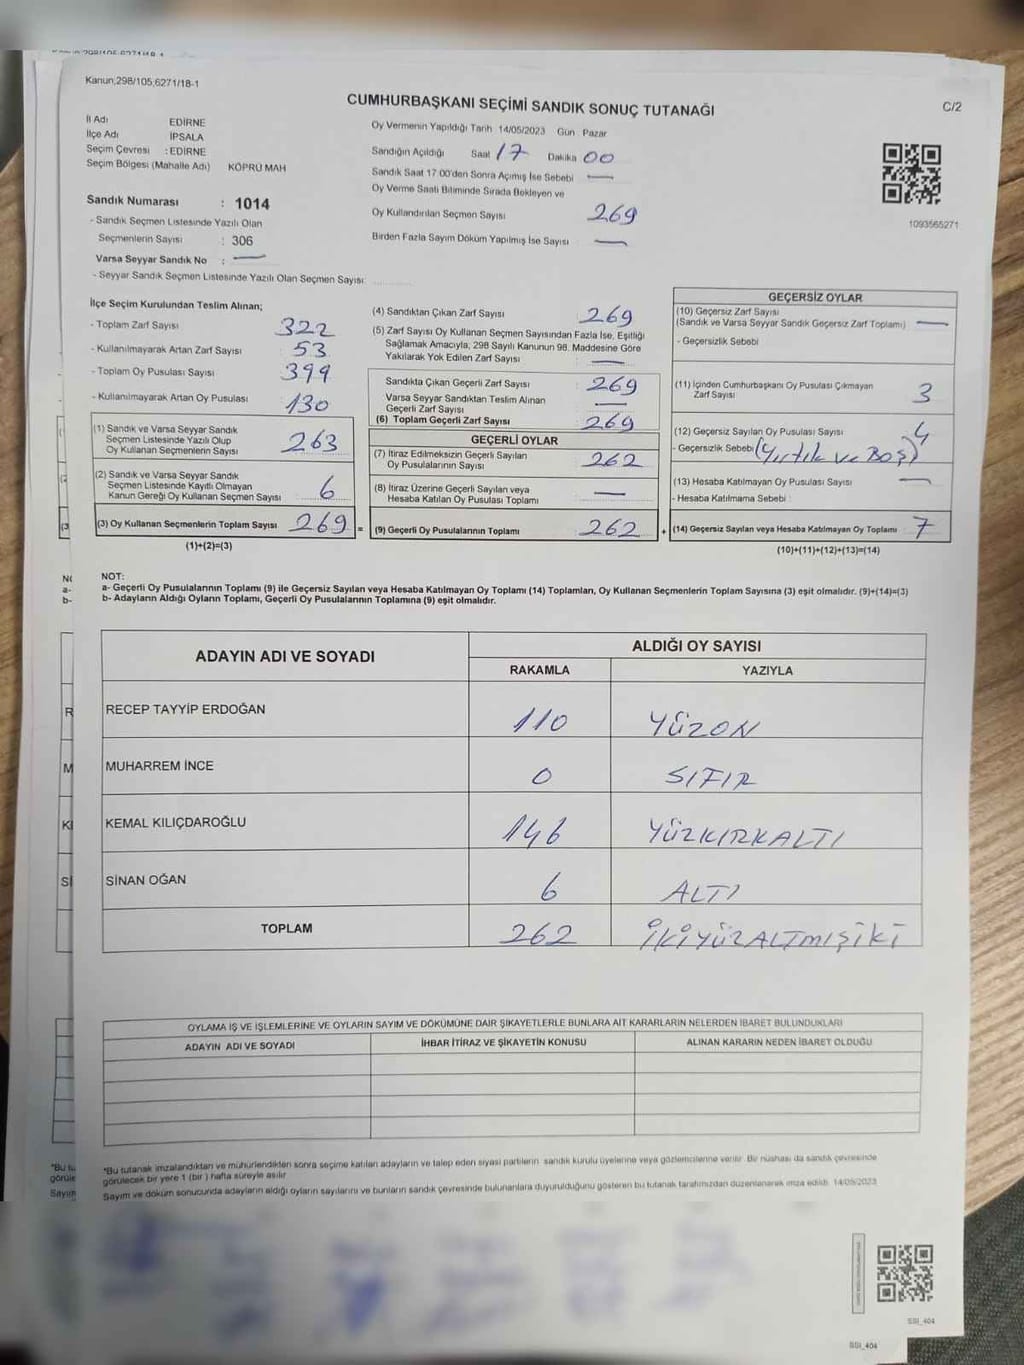 Kanun;298/105,6271/18-1
C/2
CUMHURBAŞKANI SEÇİMİ SANDIK SONUÇ TUTANAĞI
İl Adı EDİRNE
İlçe Adı İPSALA
Seçim Çevresi : EDİRNE
Seçim Bölgesi (Mahalle Adı) KÖPRÜ MAH
Sandık Numarası : 1014
- Sandık Seçmen Listesinde Yazılı Olan
Seçmenlerin Sayısı : 306
Varsa Seyyar Sandık No : —
- Seyyar Sandık Seçmen Listesinde Yazılı Olan Seçmen Sayısı:
Oy Vermenin Yapıldığı Tarih 14/05/2023 Gün Pazar
Sandığın Açıldığı Saat 17 Dakika 00
Sandık Saat 17.00'den Sonra Açımış İse Sebebi —
Oy Verme Saati Bitiminde Sırada Bekleyen ve
Oy Kullandırılan Seçmen Sayısı 269
Birden Fazla Sayım Döküm Yapılmış İse Sayısı —
1093565271
İlçe Seçim Kurulundan Teslim Alınan;
- Toplam Zarf Sayısı 322
- Kullanılmayarak Artan Zarf Sayısı 53
- Toplam Oy Pusulası Sayısı 399
- Kullanılmayarak Artan Oy Pusulası 130
(1) Sandık ve Varsa Seyyar Sandık
Seçmen Listesinde Yazılı Olup
Oy Kullanan Seçmenlerin Sayısı 263
(2) Sandık ve Varsa Seyyar Sandık
Seçmen Listesinde Kayıtlı Olmayan
Kanun Gereği Oy Kullanan Seçmen Sayısı 6
(3) Oy Kullanan Seçmenlerin Toplam Sayısı 269 =
(1)+(2)=(3)
(4) Sandıktan Çıkan Zarf Sayısı : 269
(5) Zarf Sayısı Oy Kullanan Seçmen Sayısından Fazla İse, Eşitliği
Sağlamak Amacıyla, 298 Sayılı Kanunun 98. Maddesine Göre
Yakılarak Yok Edilen Zarf Sayısı : —
Sandıkta Çıkan Geçerli Zarf Sayısı : 269
Varsa Seyyar Sandıktan Teslim Alınan
Geçerli Zarf Sayısı : —
(6) Toplam Geçerli Zarf Sayısı : 269
GEÇERLİ OYLAR
(7) İtiraz Edilmeksizin Geçerli Sayılan
Oy Pusulalarının Sayısı : 262
(8) İtiraz Üzerine Geçerli Sayılan veya
Hesaba Katılan Oy Pusulası Toplamı : —
(9) Geçerli Oy Pusulalarının Toplamı : 262 +
GEÇERSİZ OYLAR
(10) Geçersiz Zarf Sayısı
(Sandık ve Varsa Seyyar Sandık Geçersiz Zarf Toplamı) —
- Geçersizlik Sebebi
(11) İçinden Cumhurbaşkanı Oy Pusulası Çıkmayan
Zarf Sayısı 3
(12) Geçersiz Sayılan Oy Pusulası Sayısı 4
- Geçersizlik Sebebi (Yırtık ve Boş)
(13) Hesaba Katılmayan Oy Pusulası Sayısı —
- Hesaba Katılmama Sebebi :
(14) Geçersiz Sayılan veya Hesaba Katılmayan Oy Toplamı 7
(10)+(11)+(12)+(13)=(14)
NOT:
a- Geçerli Oy Pusulalarının Toplamı (9) ile Geçersiz Sayılan veya Hesaba Katılmayan Oy Toplamı (14) Toplamları, Oy Kullanan Seçmenlerin Toplam Sayısına (3) eşit olmalıdır. (9)+(14)=(3)
b- Adayların Aldığı Oyların Toplamı, Geçerli Oy Pusulalarının Toplamına (9) eşit olmalıdır.
ADAYIN ADI VE SOYADI
ALDIĞI OY SAYISI
RAKAMLA YAZIYLA
RECEP TAYYİP ERDOĞAN 110 YÜZON
MUHARREM İNCE 0 SIFIR
KEMAL KILIÇDAROĞLU 146 YÜZKIRKALTI
SİNAN OĞAN 6 ALTI
TOPLAM 262 İKİYÜZALTMIŞİKİ
OYLAMA İŞ VE İŞLEMLERİNE VE OYLARIN SAYIM VE DÖKÜMÜNE DAİR ŞİKAYETLERLE BUNLARA AİT KARARLARIN NELERDEN İBARET BULUNDUKLARI
ADAYIN ADI VE SOYADI İHBAR İTİRAZ VE ŞİKAYETİN KONUSU ALINAN KARARIN NEDEN İBARET OLDUĞU
*Bu tutanak imzalandıktan ve mühürlendikten sonra seçime katılan adayların ve talep eden siyasi partilerin sandık kurulu üyelerine veya gözlemcilerine verilir. Bir nüshası da sandık çevresinde
görülecek bir yere 1 (bir) hafta süreyle asılır
Sayım ve döküm sonucunda adayların aldığı oyların sayılarını ve bunların sandık çevresinde bulunanlara duyurulduğunu gösteren bu tutanak tarafımızdan düzenlenerek imza edildi. 14/05/2023
SSI_404
SSI_404